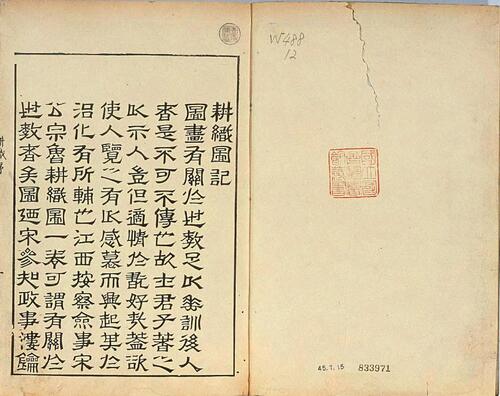 W488
12
45.7.15
833971
耕織圖記
圖畫有關於世教足以垂訓後人
者是不可不傳也故士君子著之
以示人豈但適情於翫好哉蓋欲
使人覽之有以感慕而興起其於
治化有所輔也江西按察僉事宋
公宗魯耕織圖一卷可謂有關於
世教者矣圖廼宋參知政事樓鑰